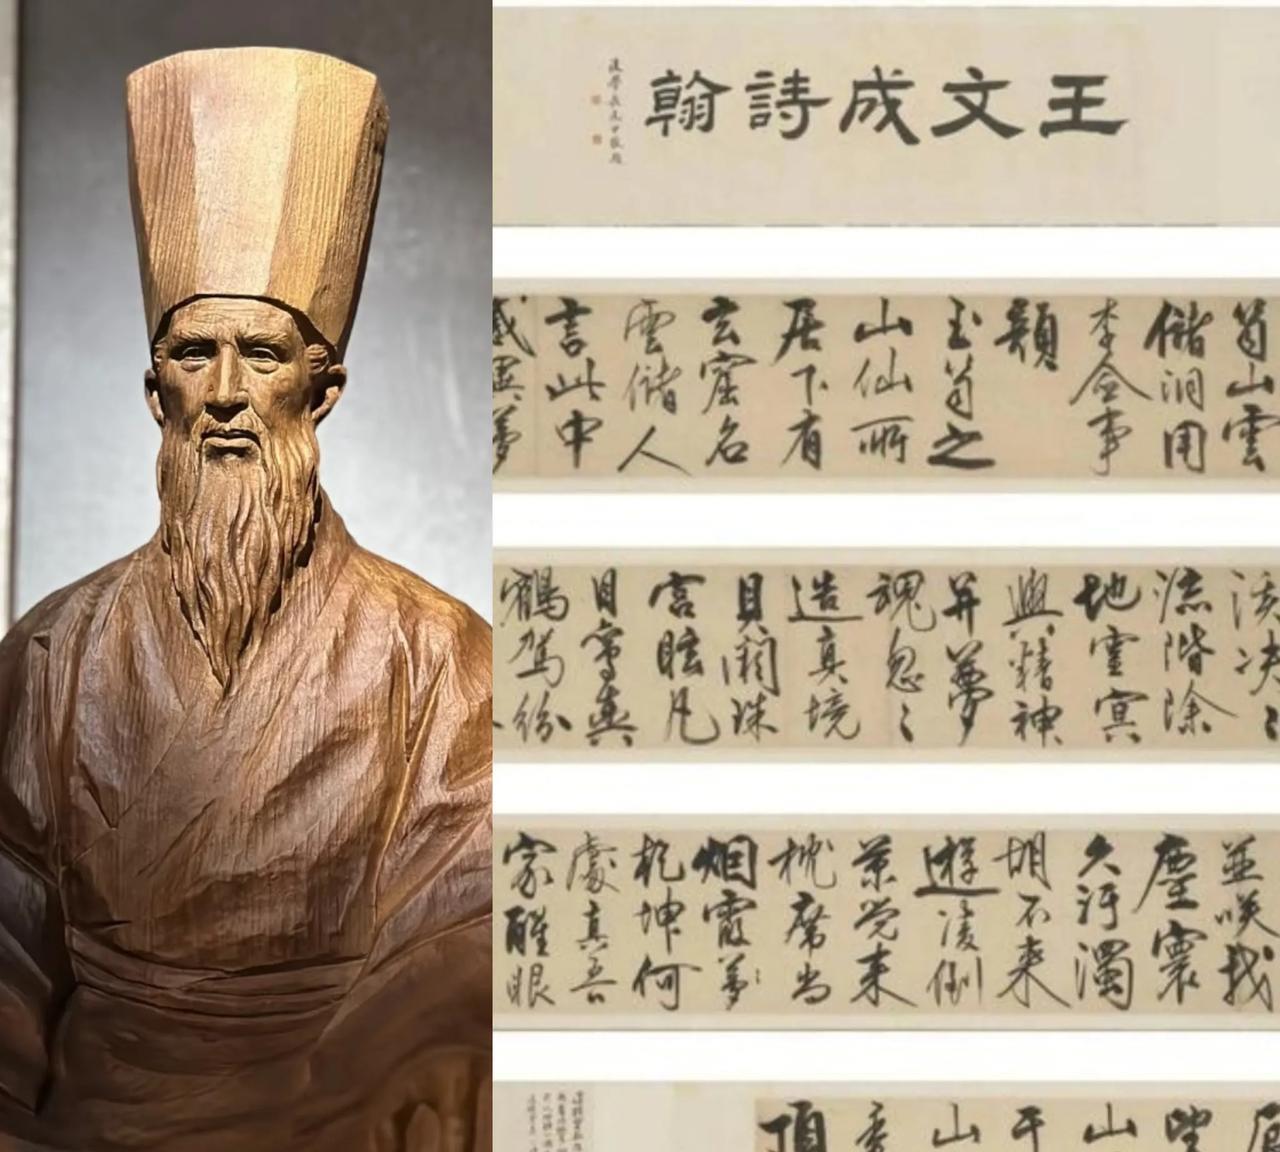 王文成詩翰
笥山雲
儲洞用
李僉事
韻
玉笥之
山仙所
居下有
玄窟名
雲儲人
言此中
感異夢
流階除
地靈冥
與精神
并夢
魂忽〻
造真境
貝闕珠
宮眩凡
目鸞輿
鶴駕紛
並咲我
塵寰
久汙濁
胡不來
遊淩倒
景覺來
枕席尚
烟霞
乾坤何
處真吾
家醒眼
望
山
千
山
秀
頂